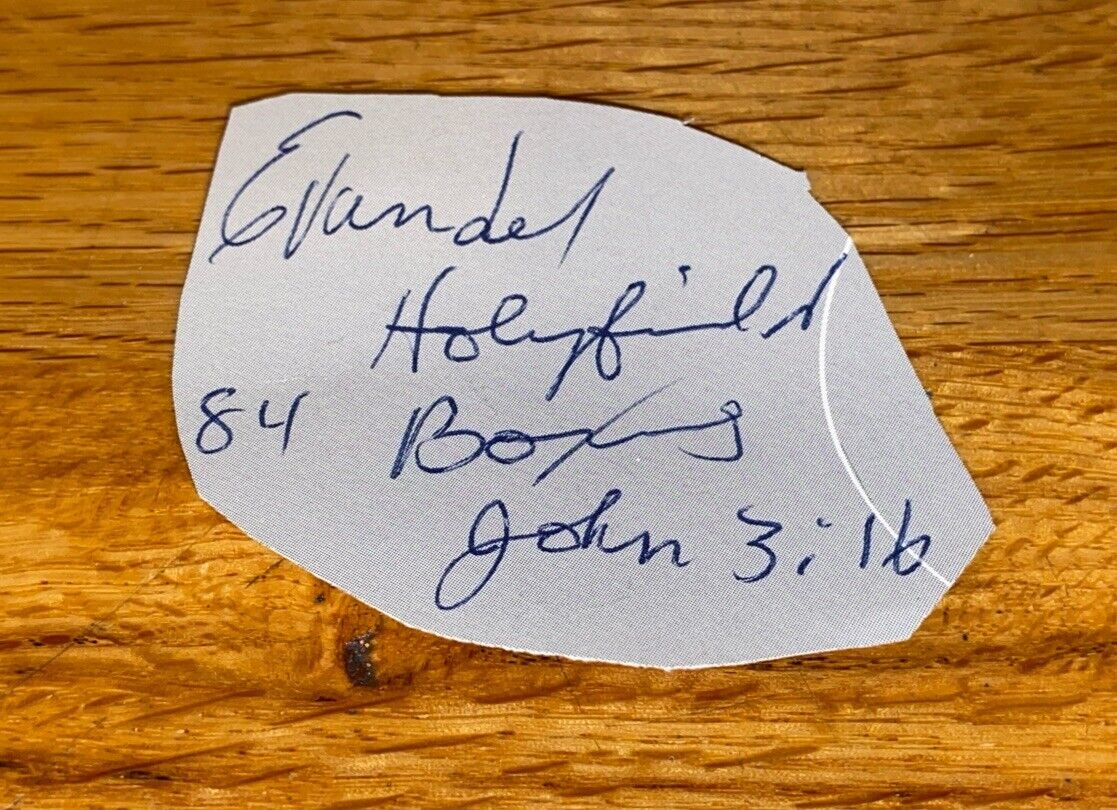 Evandel
Holyfield
84 Boxing
John 3:16